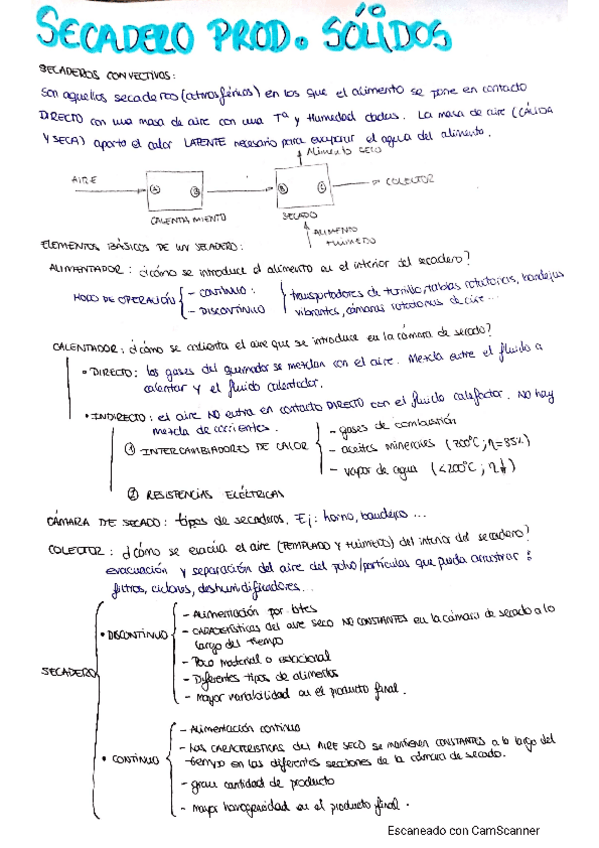 SECADERO PROD. SÓLIDOS
SECADEROS CONVECTIVOS:
Son aquellos secaderos (atmosféricos) en los que el alimento se pone en contacto
DIRECTO con una masa de aire con una Tª y Humedad dadas. La masa de aire (CÁLIDA
Y SECA) aporta el calor LATENTE necesario para evaporar el agua del alimento.
Alimento seco
AIRE
A B B C
COLECTOR
CALENTAMIENTO
SECADO
ALIMENTO
HÚMEDO
ELEMENTOS BÁSICOS DE UN SECADERO:
ALIMENTADOR: ¿cómo se introduce el alimento en el interior del secadero?
MODO DE OPERACIÓN
- CONTINUO:
- DISCONTINUO
transportadores de tornillo, tablas rotatorias, bandejas
vibrantes, cámaras rotatorias de aire...
CALENTADOR: ¿cómo se calienta el aire que se introduce en la cámara de secado?
• DIRECTO: los gases del quemador se mezclan con el aire. Mezcla entre el fluido a
calentar y el fluido calentador.
• INDIRECTO: el aire NO entra en contacto DIRECTO con el fluido calefactor. No hay
mezcla de corrientes.
① INTERCAMBIADORES DE CALOR
- gases de combustión
- aceites minerales (300ºC; η=85%)
- vapor de agua (<200ºC; η↓)
② RESISTENCIAS ELÉCTRICAS
CÁMARA DE SECADO: tipos de secaderos. Ej: horno, bandeja...
COLECTOR: ¿cómo se evacúa el aire (TEMPLADO Y HÚMEDO) del interior del secadero?
evacuación y separación del aire del polvo/partículas que pueda arrastrar:
filtros, ciclones, deshumidificadores...
SECADERO
• DISCONTINUO
- Alimentación por lotes
- CARACTERÍSTICAS del aire seco NO CONSTANTES en la cámara de secado a lo
largo del tiempo
- Poco material o estacional
- Diferentes tipos de alimentos
- Mayor variabilidad en el producto final.
• CONTINUO
- Alimentación continua
- Las CARACTERÍSTICAS del AIRE SECO se mantienen CONSTANTES a lo largo del
tiempo en las diferentes secciones de la cámara de secado.
- gran cantidad de producto
- mayor homogeneidad en el producto final.
Escaneado con CamScanner